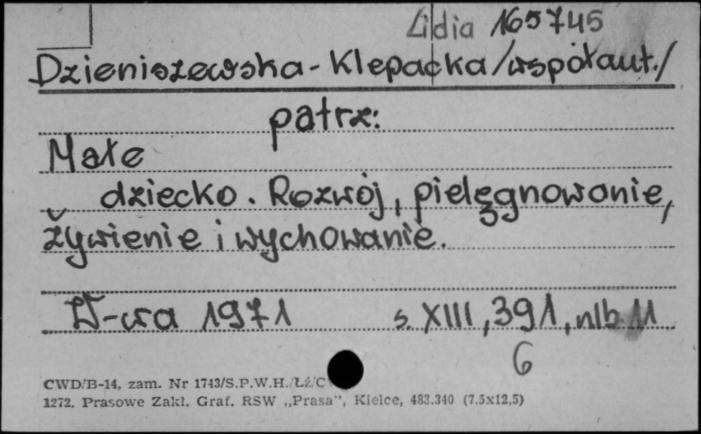 Lidia 165745
Dzieniszewska-Klepacka /współaut./
patrz:
Małe
dziecko. Rozwój, pielęgnowanie,
żywienie i wychowanie.
W-wa 1971 s. XIII, 391, nlb 11
6
CWD/B-14, zam. Nr 1743/S.P.W.H./Łź/C
1272. Prasowe Zakł. Graf. RSW „Prasa”, Kielce, 483.340 (7,5x12,5)